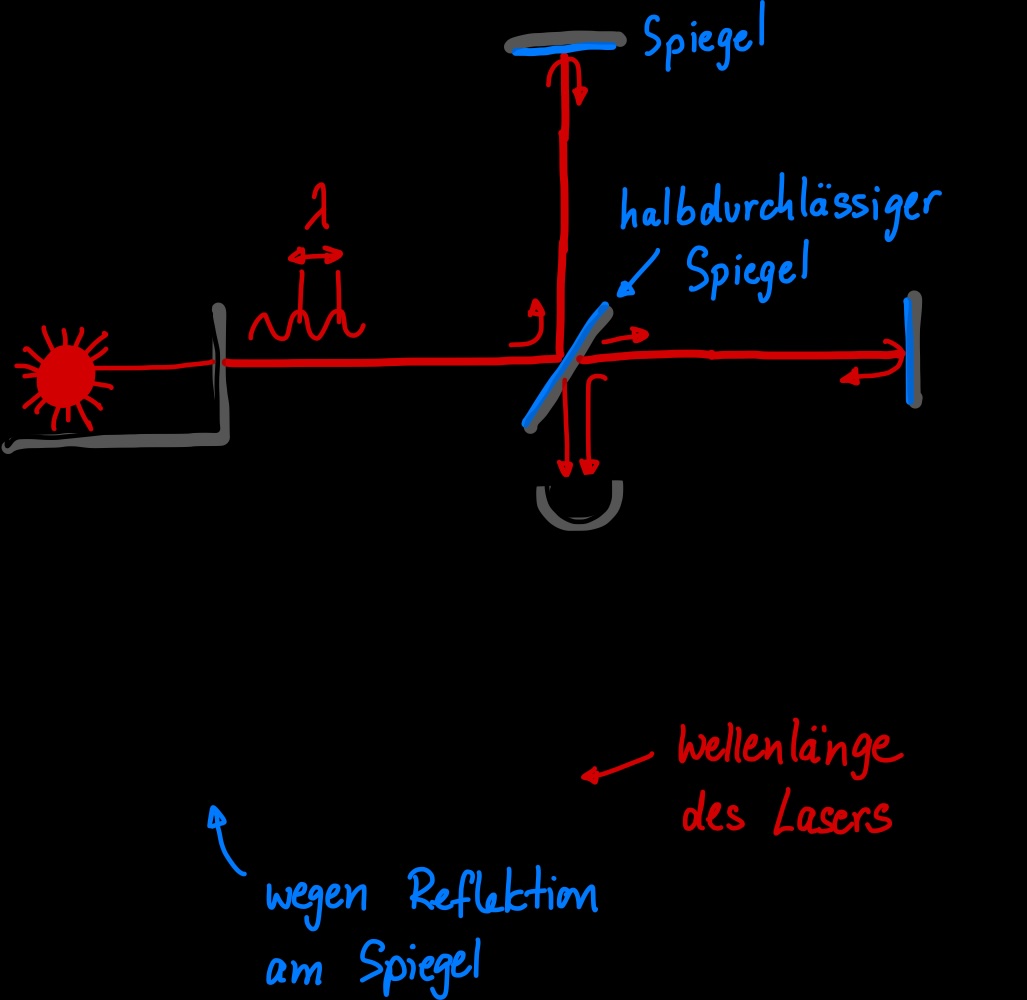 Spiegel
λ
halbdurchlässiger
Spiegel
Wellenlänge
des Lasers
wegen Reflektion
am Spiegel